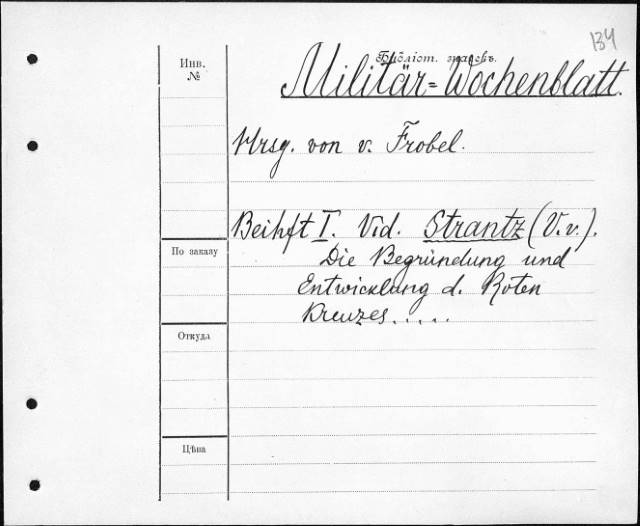 134
Библіот. значекъ.
Инв. №
Militär=Wochenblatt.
Hrsg. von v. Frobel.
Beihft I. Vid. Strantz (V. v.).
По заказу
Die Begründung und
Entwicklung d. Roten
Kreuzes.....
Откуда
Цѣна